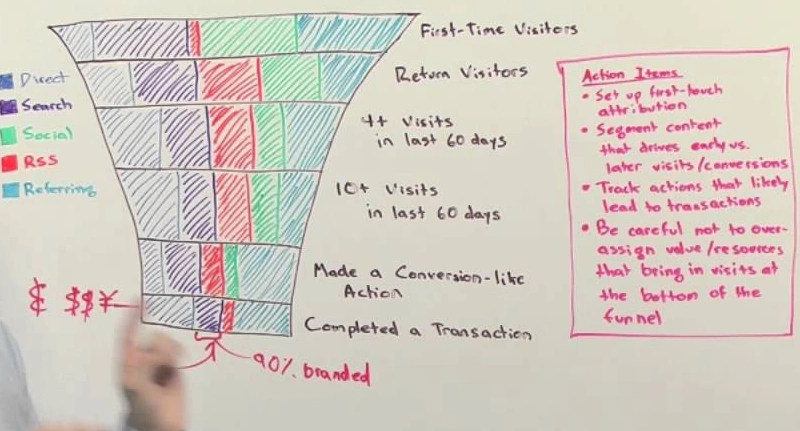 First-Time Visitors
Return Visitors
4+ Visits
in last 60 days
10+ Visits
in last 60 days
Made a Conversion-like
Action
Completed a Transaction
Direct
Search
Social
RSS
Referring
$ $$¥
90% branded
Action Items
• Set up first-touch
attribution
• Segment content
that drives early vs.
later visits/conversions
• Track actions that likely
lead to transactions
• Be careful not to over-
assign value/resources
that bring in visits at
the bottom of the
funnel